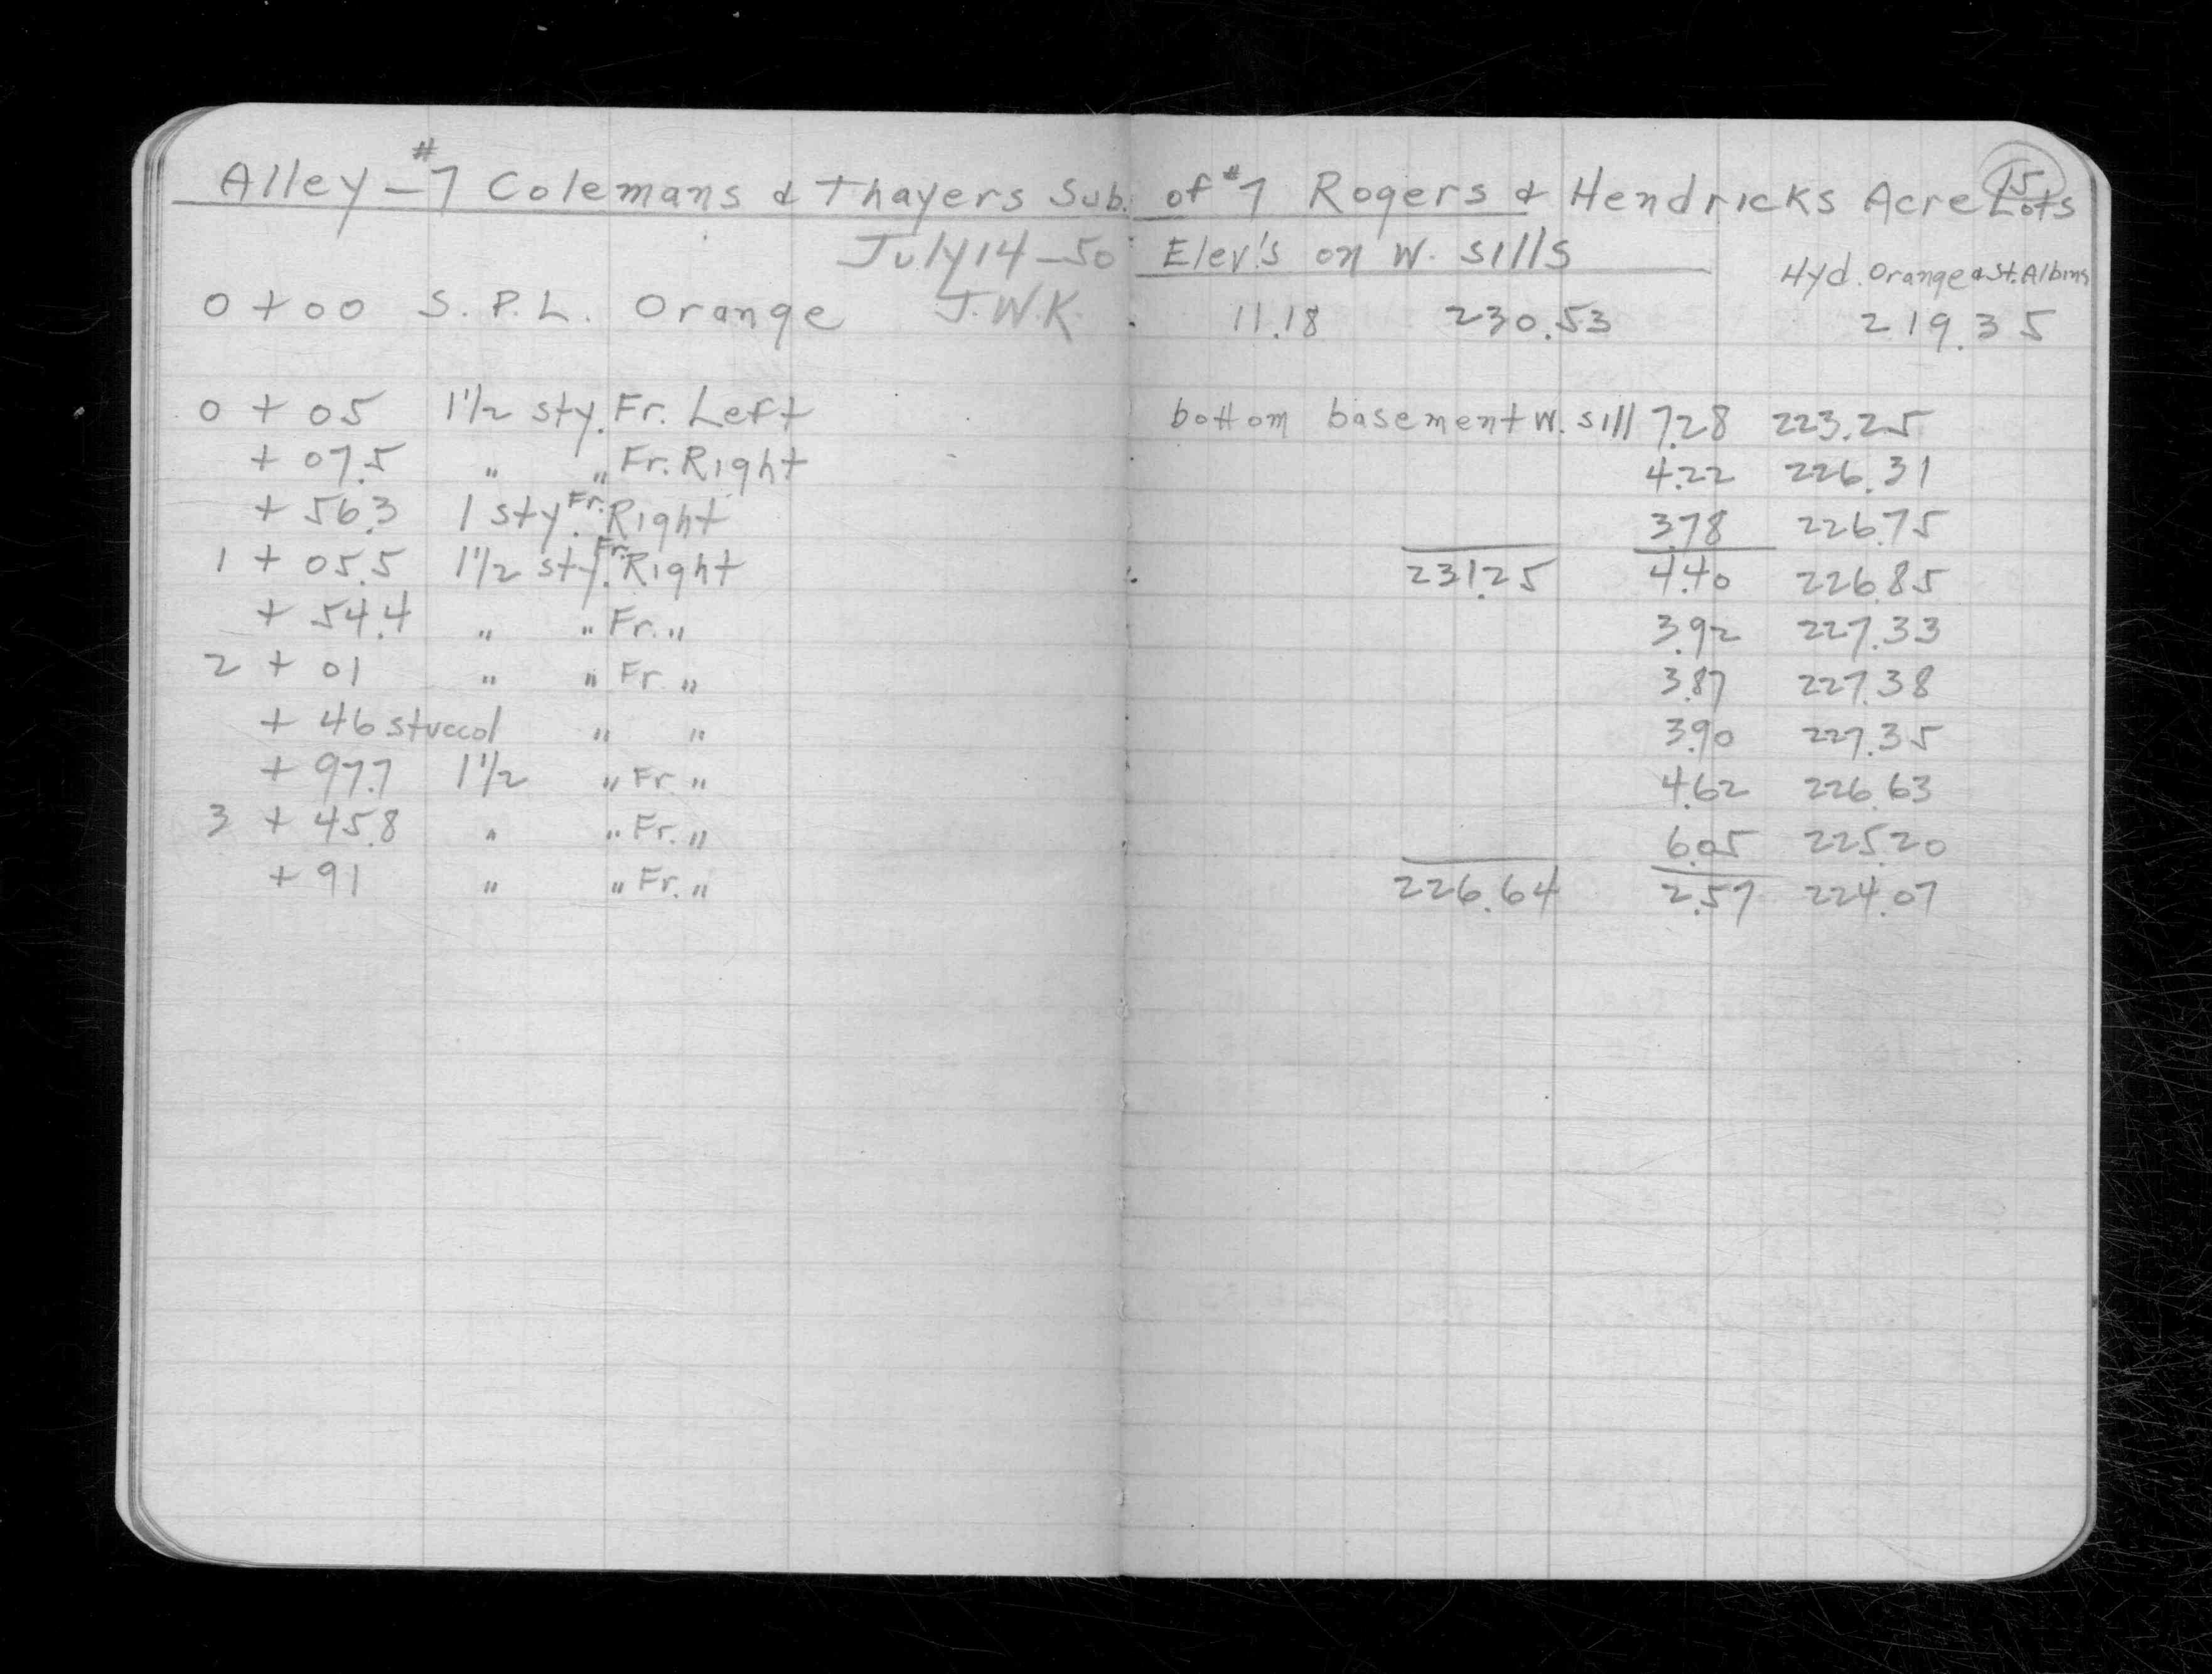 15
Alley - #7 Colemans & Thayers Sub. of #7 Rogers & Hendricks Acre Lots
July 14 - 50 Elev's on W. sills
Hyd. Orange & St. Albins
0 + 00 S. P. L. Orange J.W.K. 11.18 230.53 219.35
0 + 05 1 1/2 sty. Fr. Left bottom basement W. sill 7.28 223.25
+ 07.5 " " Fr. Right 4.22 226.31
+ 56.3 1 sty. Fr. Right 3.78 226.75
1 + 05.5 1 1/2 sty. Fr. Right 231.25 4.40 226.85
+ 54.4 " " Fr. " 3.92 227.33
2 + 01 " " Fr. " 3.87 227.38
+ 46 stucco 1 " " 3.90 227.35
+ 97.7 1 1/2 " Fr. " 4.62 226.63
3 + 45.8 " " Fr. " 6.05 225.20
+ 91 " " Fr. " 226.64 2.57 224.07